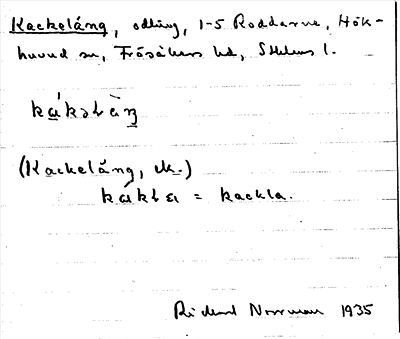 Kackeláng, odling, 1-5 Roddarne, Hök-
huvud sn, Frösåkers hd, Sthlms l.
kákəlàŋ
(Kackeláng, ek.)
káklа = kackla.
Rickard Norrman 1935